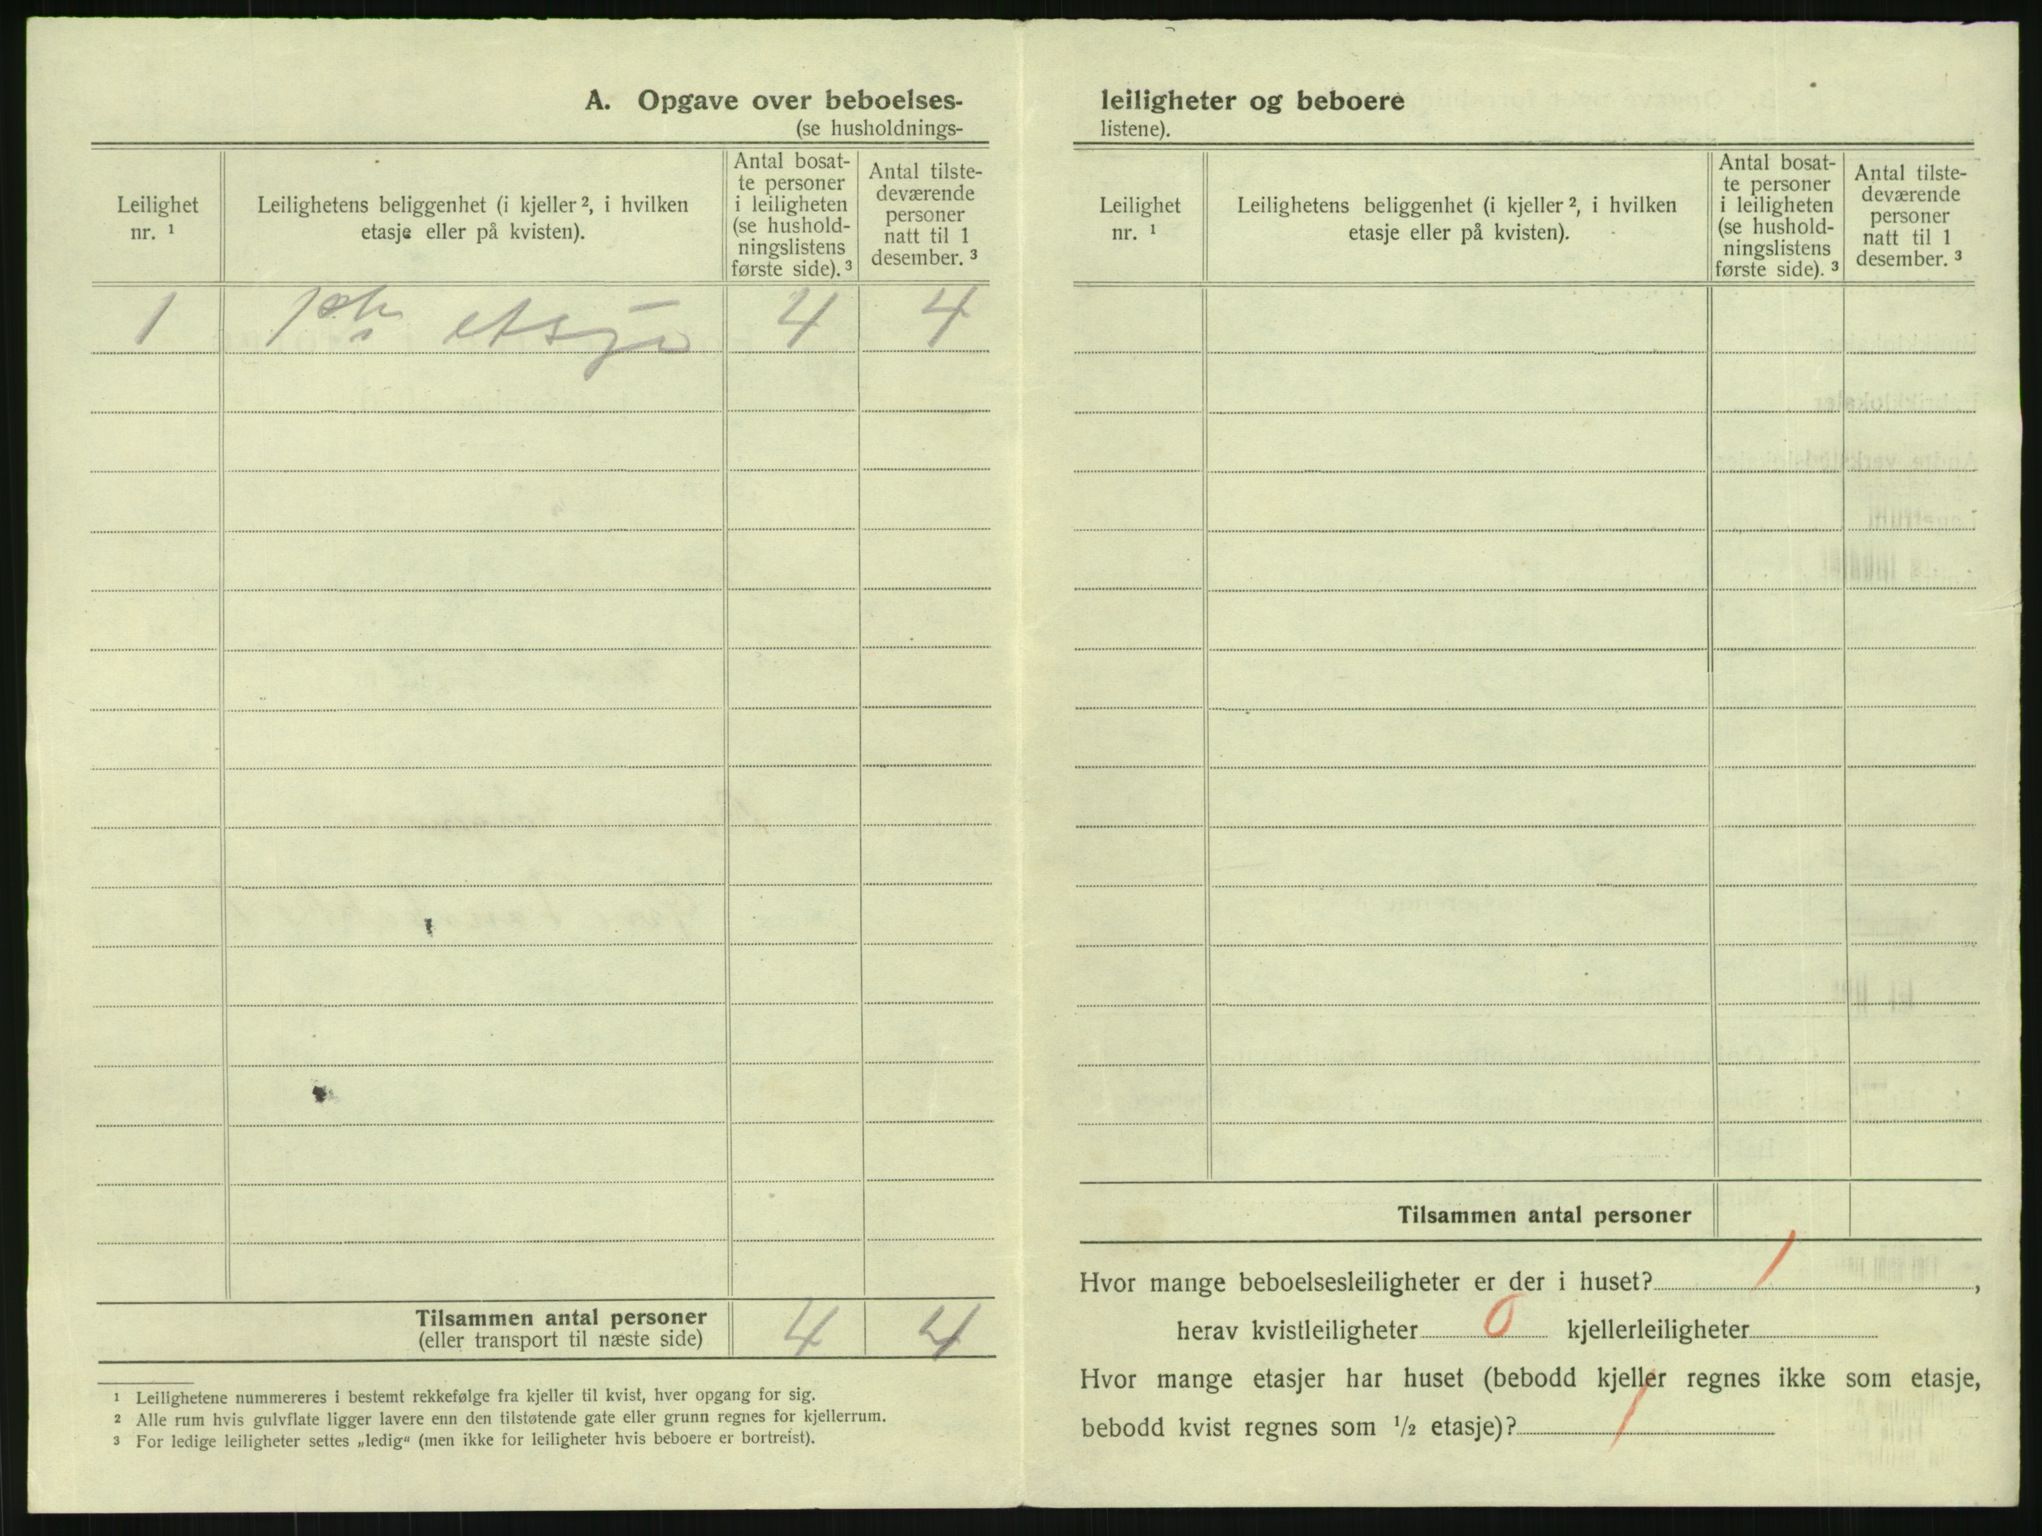 A. Opgave over beboelses-
(se husholdnings-
Leilighet
nr. ¹
Leilighetens beliggenhet (i kjeller ², i hvilken
etasje eller på kvisten).
Antal bosat-
te personer
i leiligheten
(se hushold-
ningslistens
første side). ³
Antal tilste-
deværende
personer
natt til 1
desember. ³
1 etasje 4 4
Tilsammen antal personer 4 4
(eller transport til næste side)
¹ Leilighetene nummereres i bestemt rekkefølge fra kjeller til kvist, hver opgang for sig.
² Alle rum hvis gulvflate ligger lavere enn den tilstøtende gate eller grunn regnes for kjellerrum.
³ For ledige leiligheter settes „ledig“ (men ikke for leiligheter hvis beboere er bortreist).
leiligheter og beboere
listene).
Leilighet
nr. ¹
Leilighetens beliggenhet (i kjeller ², i hvilken
etasje eller på kvisten).
Antal bosat-
te personer
i leiligheten
(se hushold-
ningslistens
første side). ³
Antal tilste-
deværende
personer
natt til 1
desember. ³
Tilsammen antal personer
Hvor mange beboelsesleiligheter er der i huset? 1,
herav kvistleiligheter 0 kjellerleiligheter
Hvor mange etasjer har huset (bebodd kjeller regnes ikke som etasje,
bebodd kvist regnes som ½ etasje)? 1